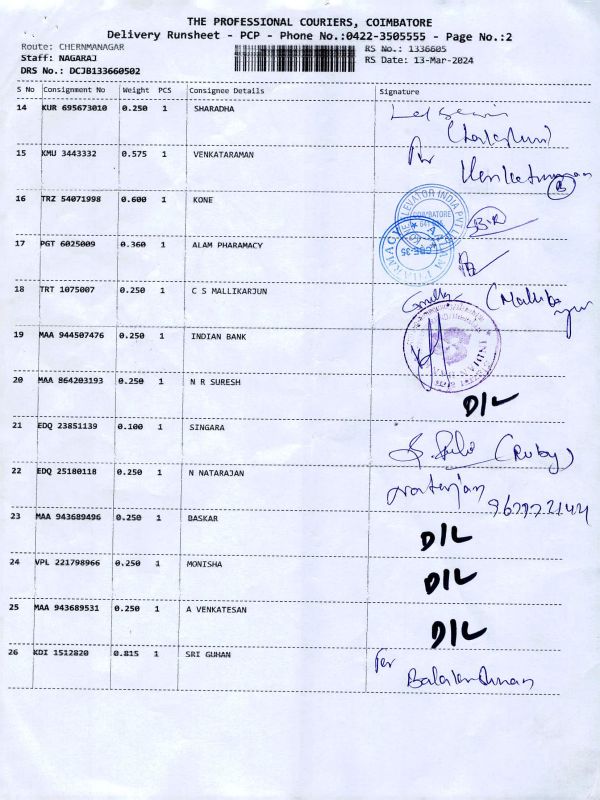 THE PROFESSIONAL COURIERS, COIMBATORE
Delivery Runsheet - PCP - Phone No.:0422-3505555 - Page No.:2
Route: CHERNMANAGAR RS No.: 1336605
Staff: NAGARAJ RS Date: 13-Mar-2024
DRS No.: DCJB133660502
S No Consignment No Weight PCS Consignee Details Signature
14 KUR 695673010 0.250 1 SHARADHA
15 KMU 3443332 0.575 1 VENKATARAMAN
16 TRZ 54071998 0.600 1 KONE
17 PGT 6025009 0.360 1 ALAM PHARAMACY
18 TRT 1075007 0.250 1 C S MALLIKARJUN
19 MAA 944507476 0.250 1 INDIAN BANK
20 MAA 864203193 0.250 1 N R SURESH D/L
21 EDQ 23851139 0.100 1 SINGARA (Ruby)
22 EDQ 25180118 0.250 1 N NATARAJAN Natarjan
23 MAA 943689496 0.250 1 BASKAR D/L
24 VPL 221798966 0.250 1 MONISHA D/L
25 MAA 943689531 0.250 1 A VENKATESAN D/L
26 KDI 1512820 0.815 1 SRI GUHAN For